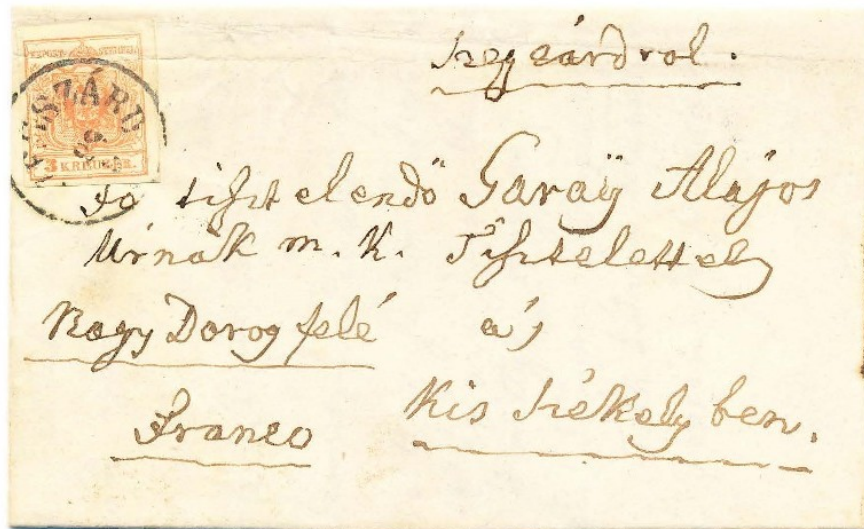 Szegszárdrol.
SZEGSZÁRD
3 KREUZER.
Fő tisztelendő Garaÿ Alajos
Úrnák m. K. Tisztelettel
Nagy Dorog felé á,
Franco Kis Székely ben.